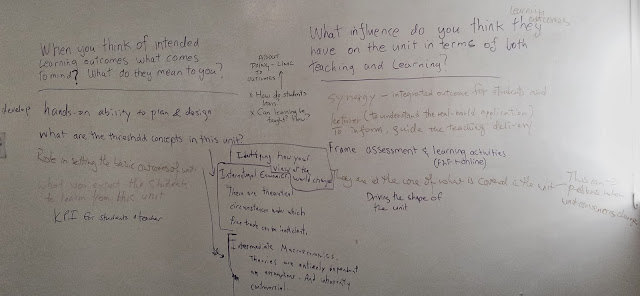 When you think of intended
learning outcomes what comes
to mind? What do they mean to you?
develop hands-on ability to plan & design
what are the threshold concepts in this unit?
Role in setting the basic outcomes of unit
what you expect the students
to learn from this unit
KPI for students & teacher
ABOUT
Policy - Link
to
outcomes
x How do students
learn
x Can learning be
taught? How?
Identifying how your
view of the
world changes
International Economics
There are theoretical
circumstances under which
free trade can be inefficient.
Intermediate Macroeconomics.
Theories are entirely dependent
on assumptions. And inherently
controversial
learning
outcomes
What influence do you think they
have on the unit in terms of both
teaching and learning?
synergy - integrated outcome for students and
(to understand the real-world application)
To inform, guide the teaching delivery
Frame assessment & learning activities
(F2F + online)
They are at the core of what is covered in the unit
Driving the shape of
the unit
This can